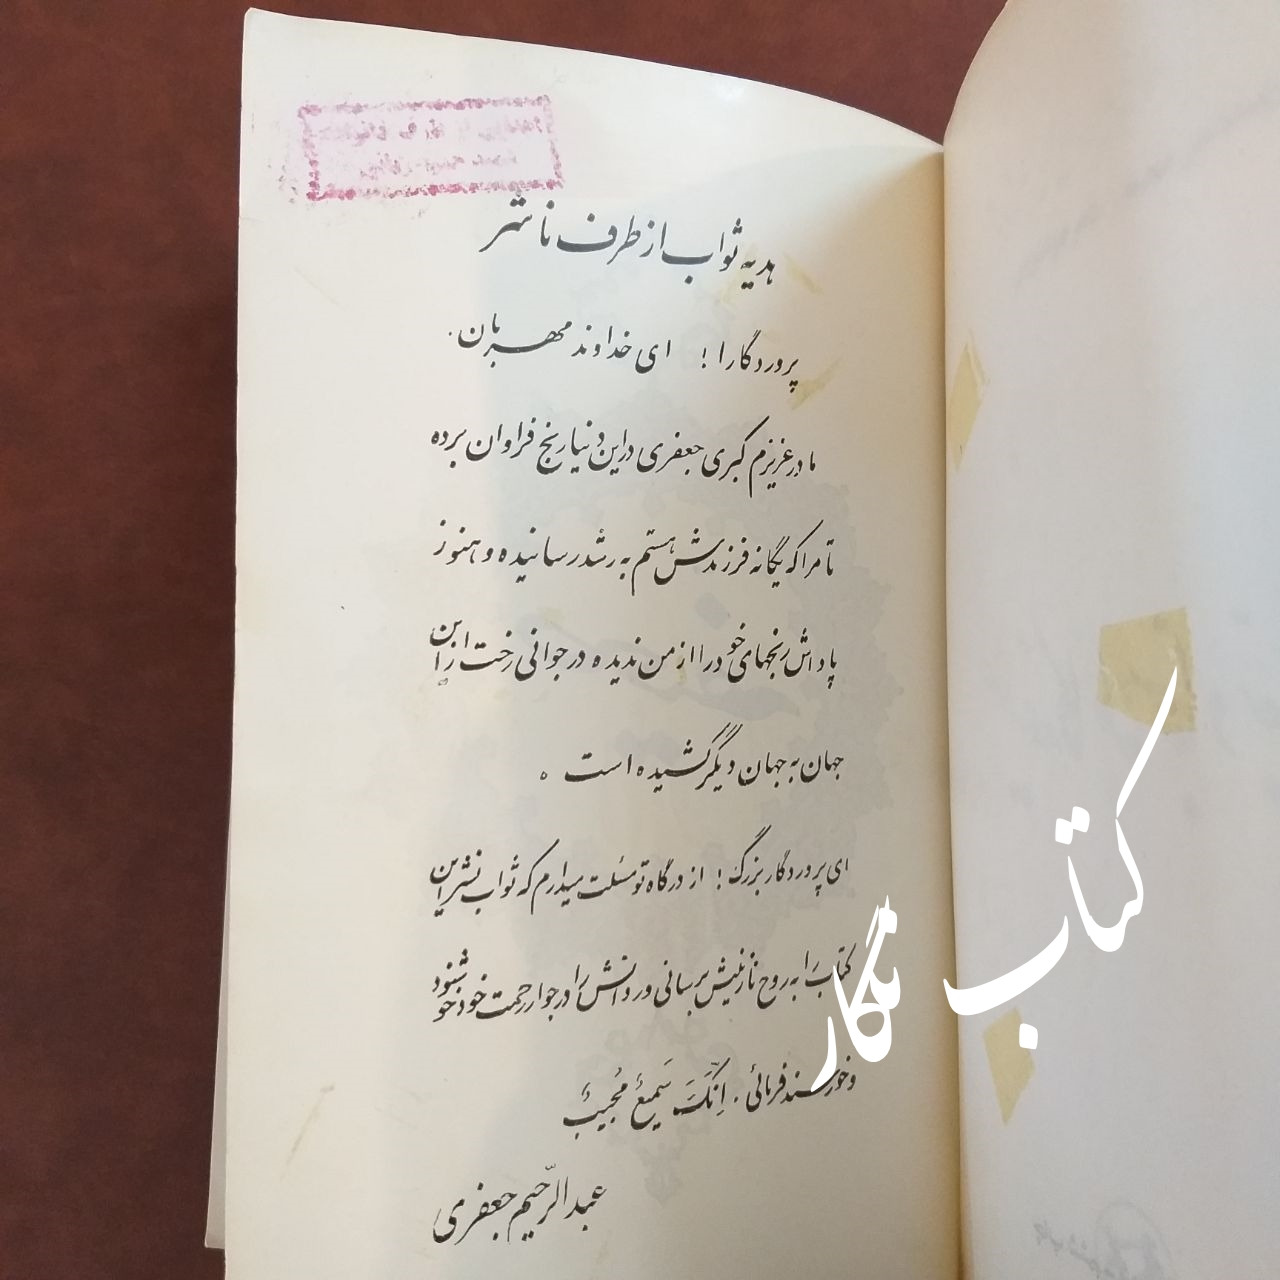 هدیه ثواب از طرف ناشر
پروردگارا! ای خداوند مهربان.
مادر عزیزم کبری جعفری در این دنیا رنج فراوان برده
تا مرا که یگانه فرزندش هستم به رشد رسانیده و هنوز
پاداش رنجهای خود را از من ندیده در جوانی رخت از این
جهان به جهان دیگر کشیده است.
ای پروردگار بزرگ! از درگاه تو مسئلت میدارم که ثواب نشر این
کتاب را به روح نازنینش برسانی و روانش را در جوار رحمت خود خوشنود
و خورسند فرمائی. اِنَّکَ سَمیعٌ مُجیبٌ
عبدالرّحیم جعفری
کتاب نگار